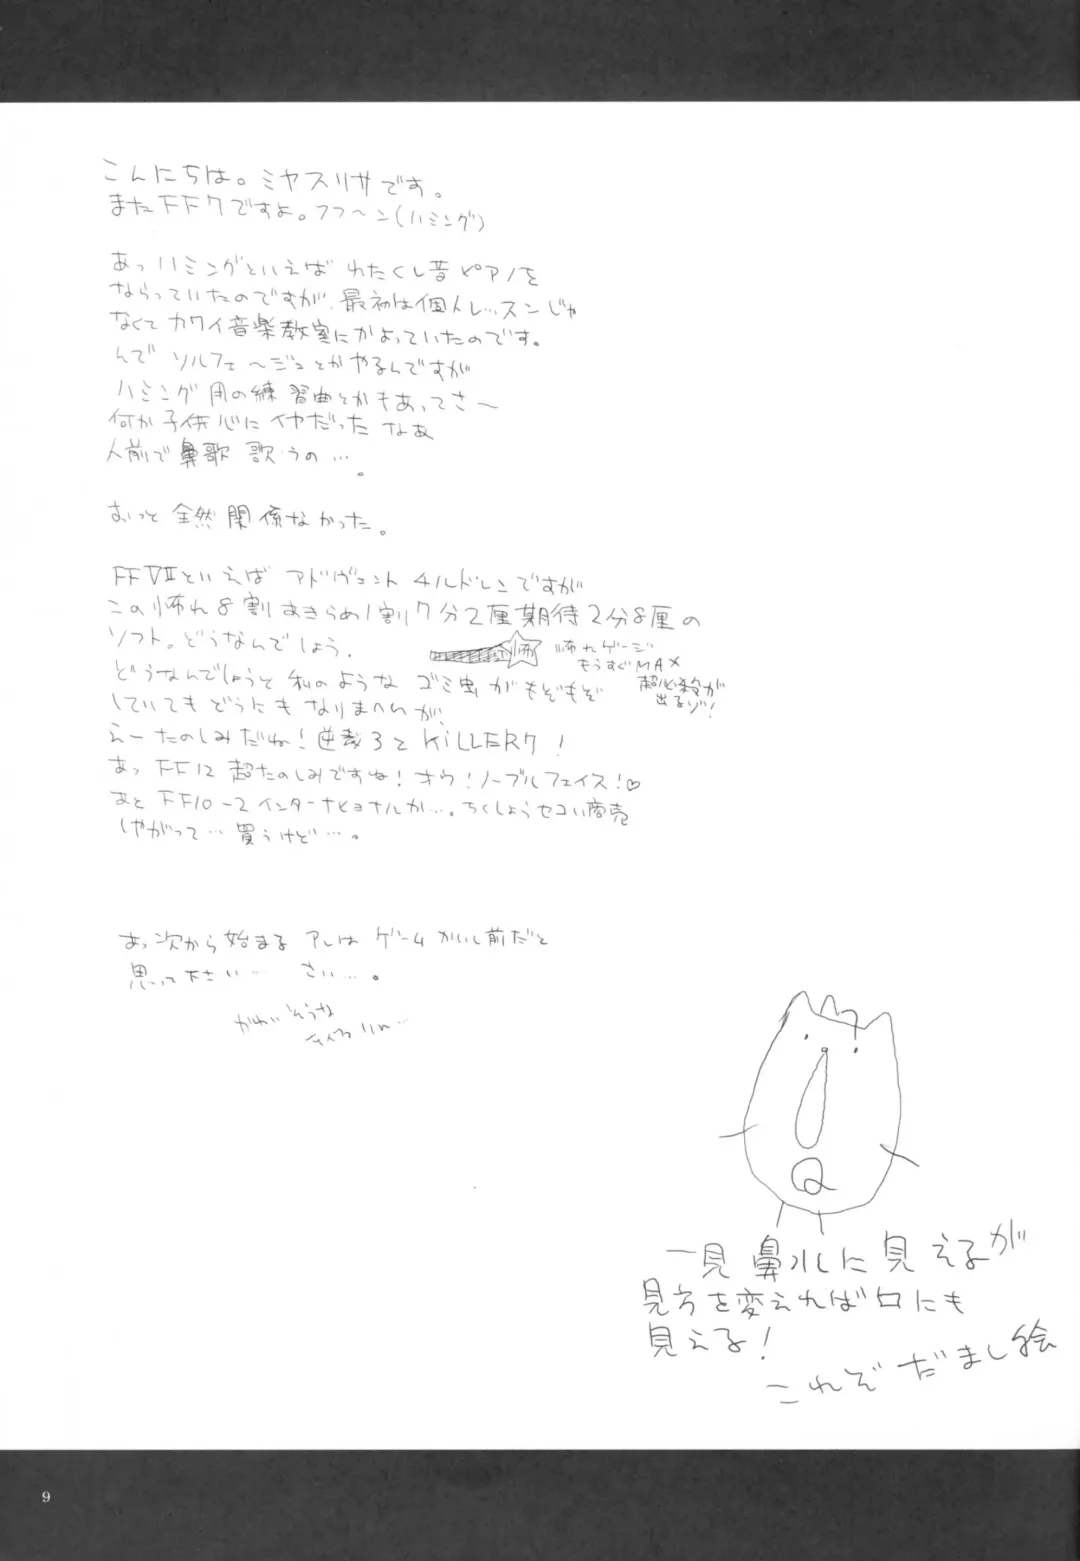 こんにちは。ミヤスリサです。
またFF7ですよ。フフ〜ン(ハミング)
あっハミングといえば わたくし昔ピアノを
ならっていたのですが、最初は個人レッスンじゃ
なくて カワイ音楽教室にかよっていたのです。
んで ソルフェ〜ジュとかやるんですが
ハミング用の練習曲とかもあってさ〜
何か子供心に イヤだった なあ
人前で鼻歌 歌うの…。
おっと 全然関係なかった。
FFⅦといえば アドヴェント チルドレンですが
この怖れ8割あきらめ1割7分2厘期待2分8厘の
ソフト。どうなんでしょう。
怖
怖れゲージ
もうすぐMAX
超必殺が
出るゾ!
どうなんでしょうと 私のような ゴミ虫がもぞもぞ
していてもどうにも なりまへんが、
えー たのしみだね!逆裁3とKiLLER7!
あっ FF12 超たのしみですね!オウ!ノーブルフェイス!♡
あと FF10-2インターナショナルか…。ちくしょうセコい商売
しやがって…買うけど…。
あっ次から始まる アレは ゲームがいし前だと
思って下さい… さい…。
かわいそうな
一見鼻水に見えるが
見方を変えれば口にも
見える!
これぞだまし絵
9